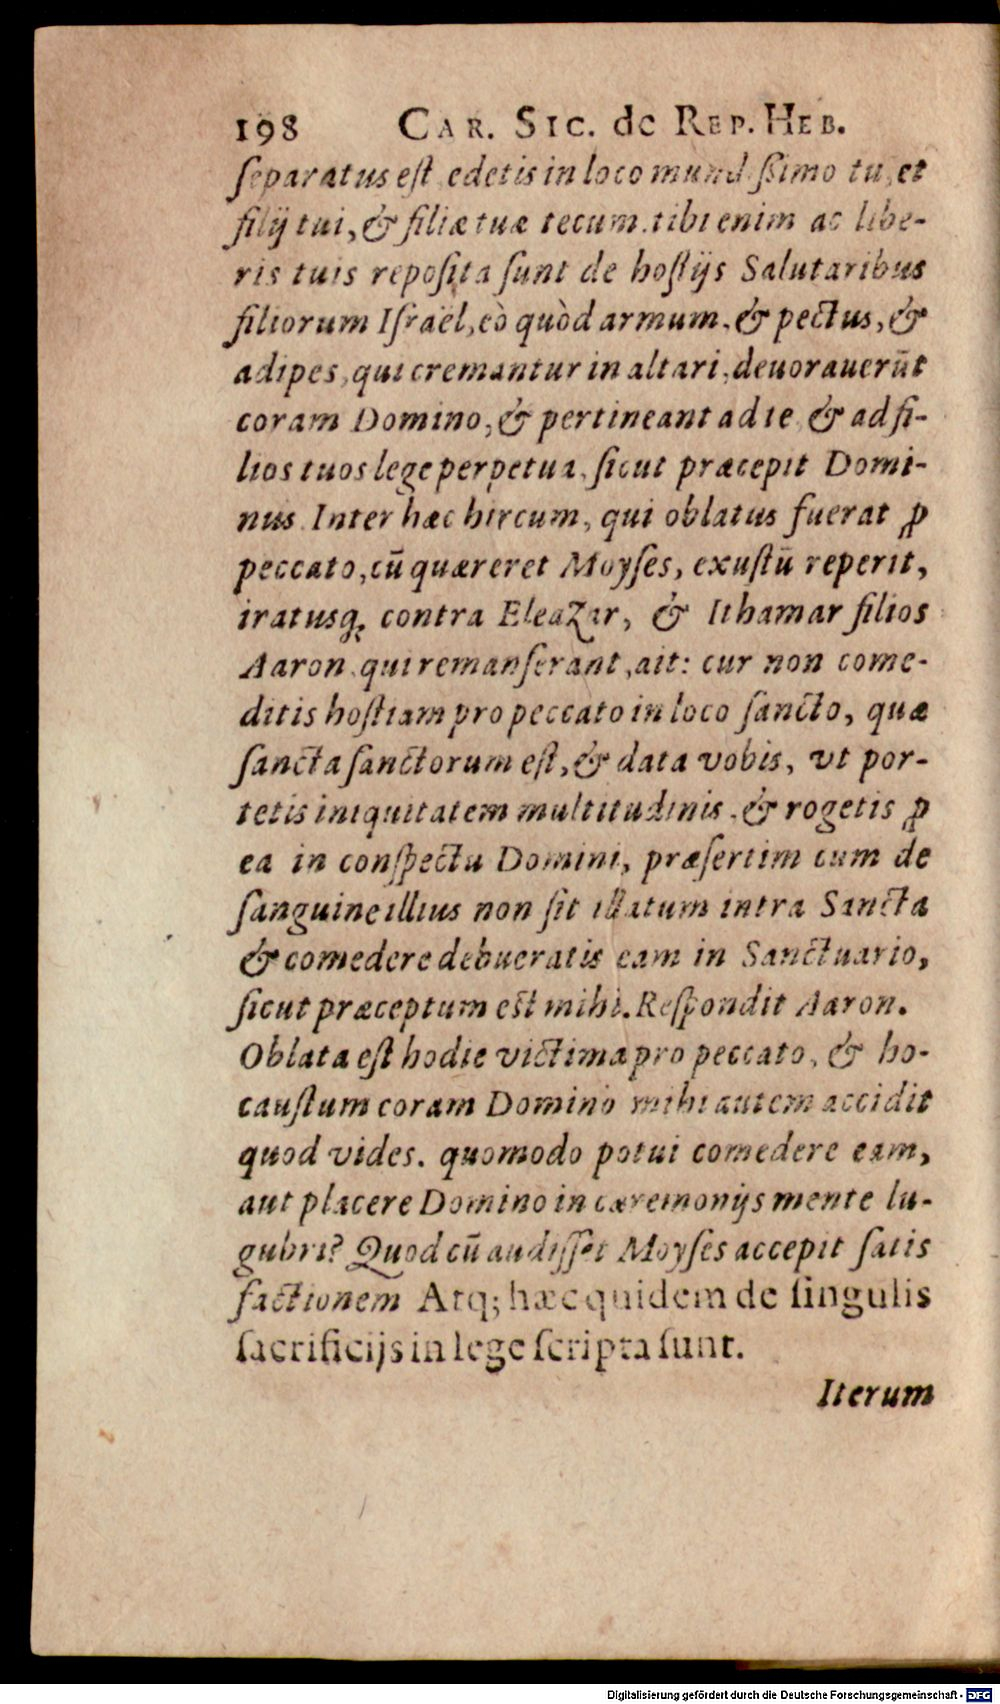 198 CAR. SIC. de REP. HEB.
ſeparatus eſt edetis in loco mundiſſimo tu, et
filij tui, & filiæ tuæ tecum. tibi enim ac libe-
ris tuis repoſita ſunt de hoſtijs Salutaribus
filiorum Iſraël, eò quòd armum, & pectus, &
adipes, qui cremantur in altari, deuorauerūt
coram Domino, & pertineant ad te & ad fi-
lios tuos lege perpetua, ſicut præcepit Domi-
nus. Inter hæc hircum, qui oblatus fuerat ꝓ
peccato, cū quæreret Moyſes, exuſtū reperit,
iratusq; contra Eleazar, & Ithamar filios
Aaron, qui remanſerant, ait: cur non come-
ditis hoſtiam pro peccato in loco ſancto, quæ
ſancta ſanctorum eſt, & data vobis, vt por-
tetis iniquitatem multitudinis, & rogetis ꝓ
ea in conſpectu Domini, præſertim cum de
ſanguine illius non ſit illatum intra Sancta
& comedere debueratis eam in Sanctuario,
ſicut præceptum est mihi. Reſpondit Aaron.
Oblata eſt hodie victima pro peccato, & ho-
cauſtum coram Domino mihi autem accidit
quod vides. quomodo potui comedere eam,
aut placere Domino in cæremonijs mente lu-
gubri? Quod cū audiſſet Moyſes accepit ſatis
factionem Atq; hæc quidem de ſingulis
ſacrificijs in lege ſcripta ſunt.
Iterum
Digitalisierung gefördert durch die Deutsche Forschungsgemeinschaft - DFG